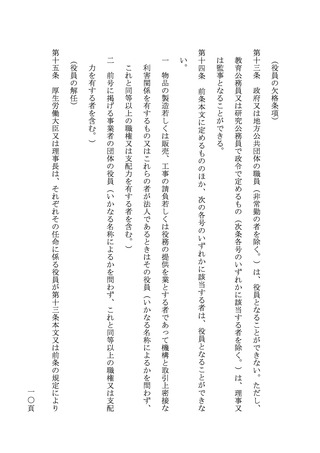 （役員の欠格条項）
第十三条　政府又は地方公共団体の職員（非常勤の者を除く。）は、役員となることができない。ただし、
教育公務員又は研究公務員で政令で定めるもの（次条各号のいずれかに該当する者を除く。）は、理事又
は監事となることができる。
第十四条　前条本文に定めるもののほか、次の各号のいずれかに該当する者は、役員となることができな
い。
一　物品の製造若しくは販売、工事の請負若しくは役務の提供を業とする者であって機構と取引上密接な
利害関係を有するもの又はこれらの者が法人であるときはその役員（いかなる名称によるかを問わず、
これと同等以上の職権又は支配力を有する者を含む。）
二　前号に掲げる事業者の団体の役員（いかなる名称によるかを問わず、これと同等以上の職権又は支配
力を有する者を含む。）
（役員の解任）
第十五条　厚生労働大臣又は理事長は、それぞれその任命に係る役員が第十三条本文又は前条の規定により
一〇頁